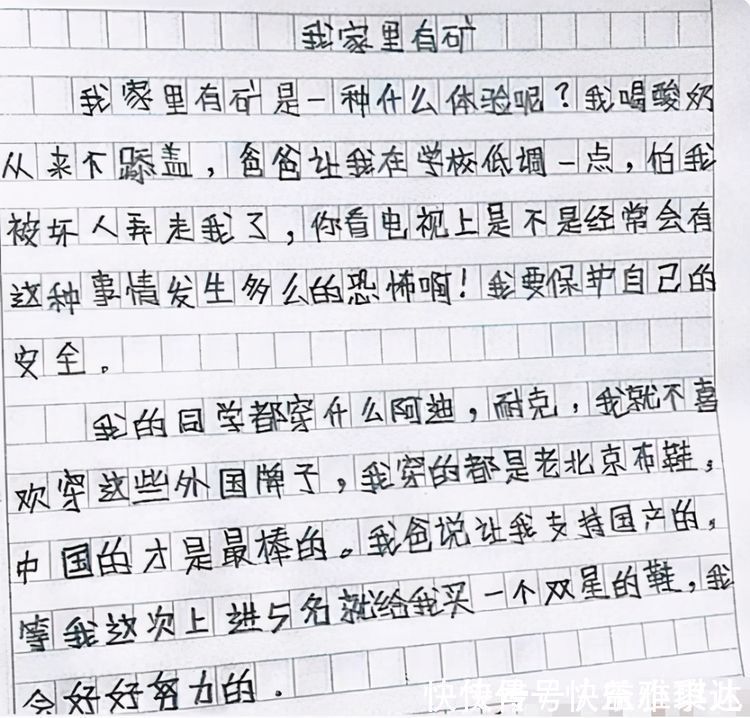 我家里有矿
我家里有矿是一种什么体验呢？我喝酸奶
从来不舔盖，爸爸让我在学校低调一点，怕我
被坏人弄走我了，你看电视上是不是经常会有
这种事情发生多么的恐怖啊！我要保护自己的
安全。
我的同学都穿什么阿迪，耐克，我就不喜
欢穿这些外国牌子，我穿的都是老北京布鞋，
中国的才是最棒的。我爸说让我支持国产的，
等我这次上进5名就给我买一个双星的鞋，我
会好好努力的．
快传号